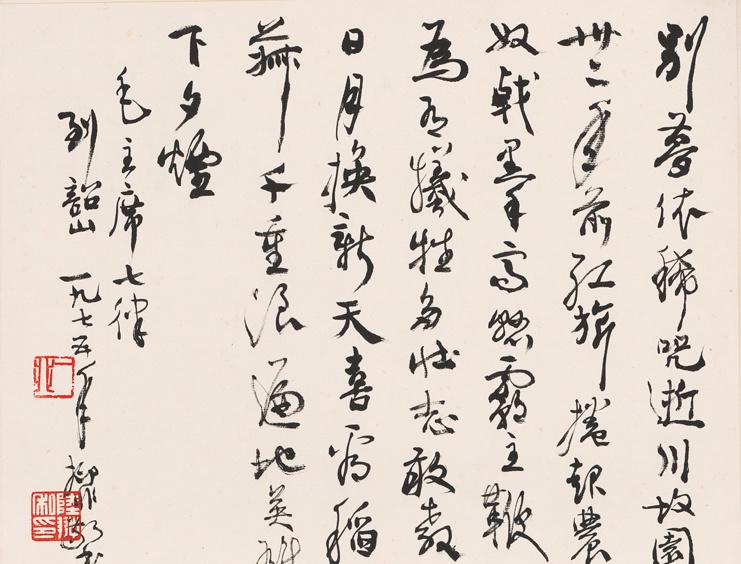 別夢依稀咒逝川故園
卅二年前紅旗捲起農
奴戟黑手高懸霸主鞭
為有犧牲多壯志敢教
日月換新天喜看稻
菽千重浪遍地英雄
下夕煙
毛主席七律
到韶山 一九七五年